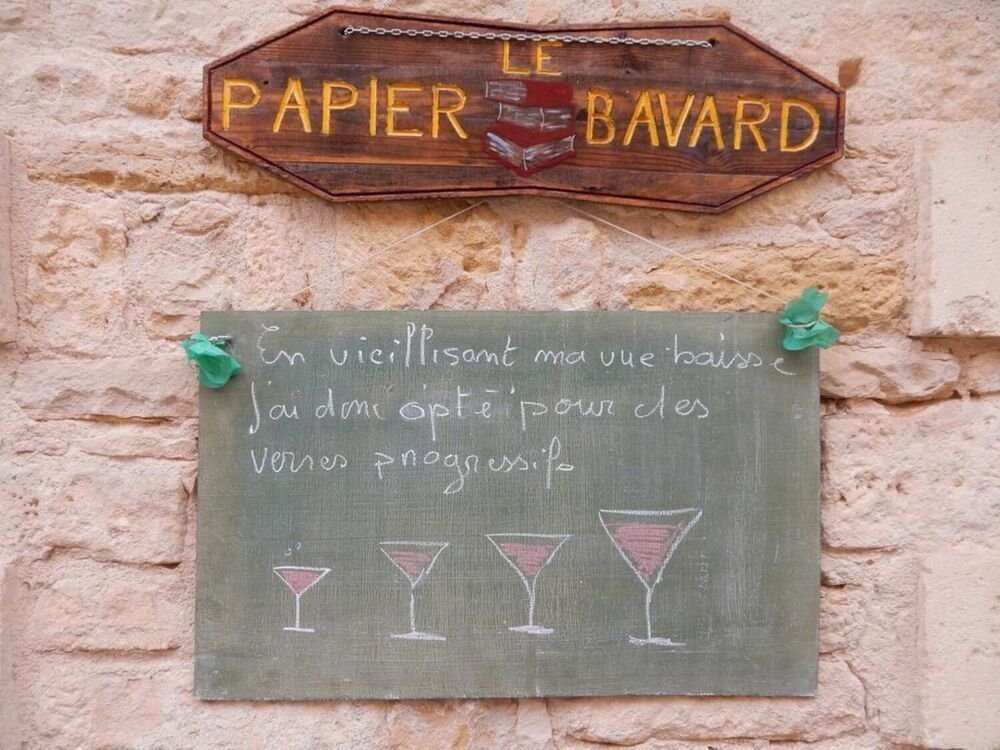 LE
PAPIER BAVARD
En vieillisant ma vue baisse
J'ai donc opté pour des
verres progressifs